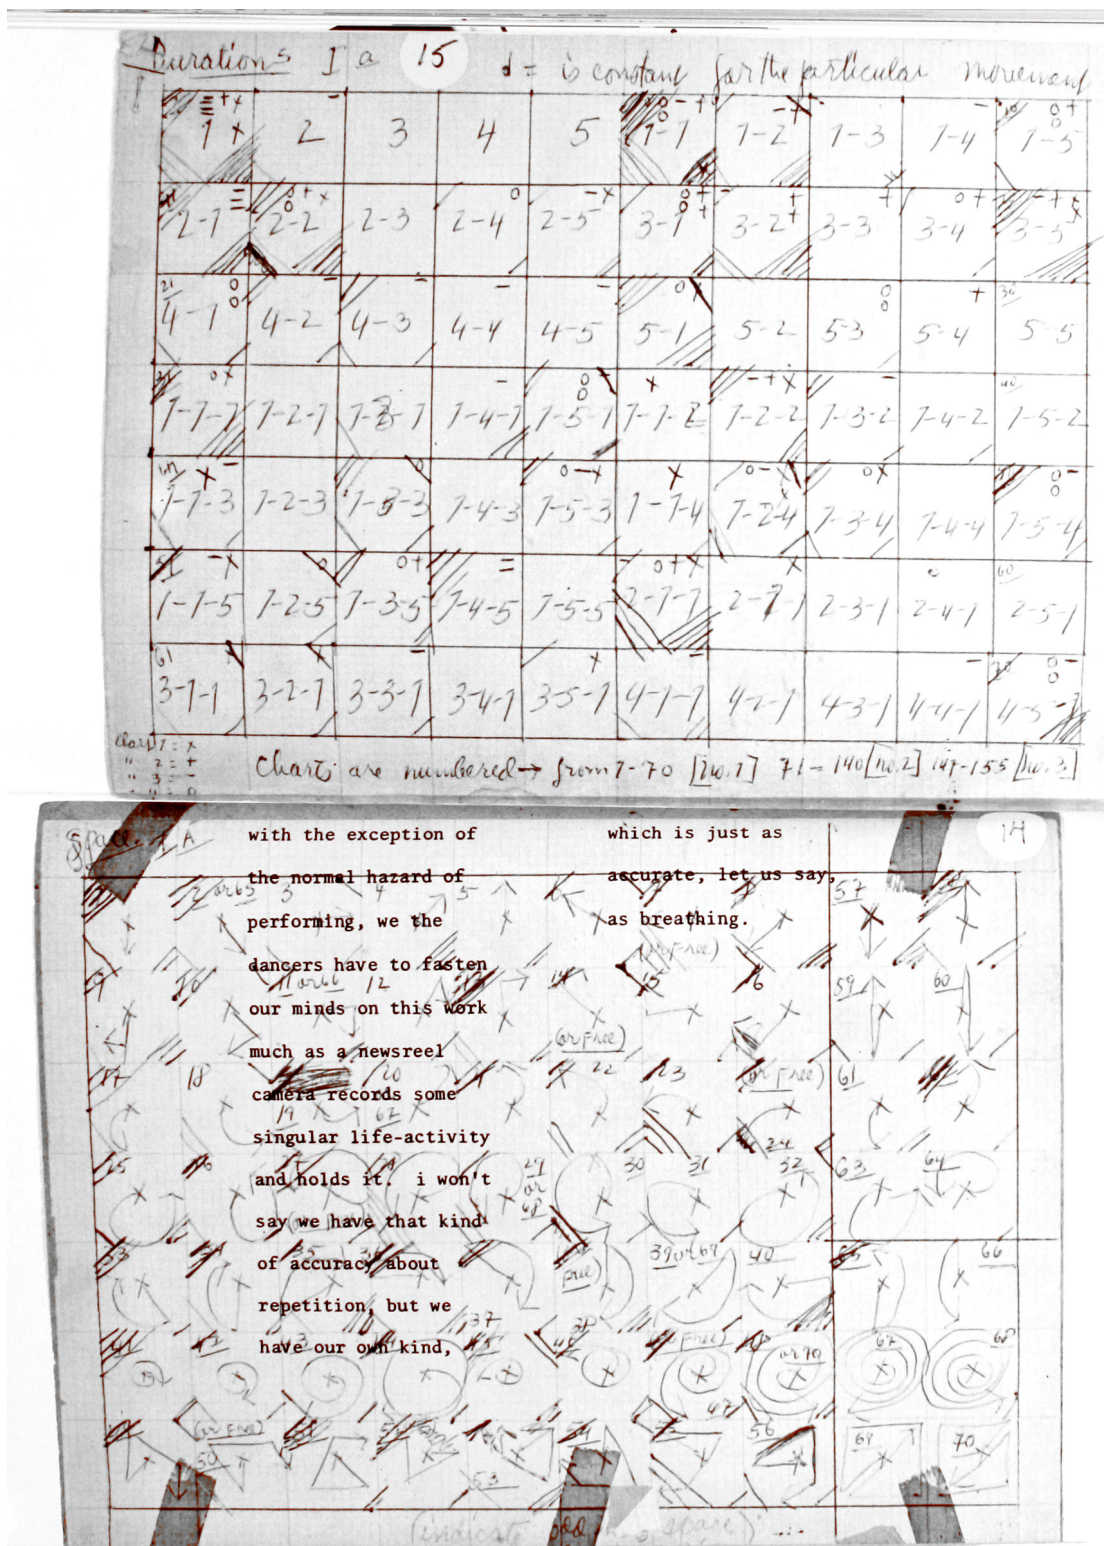 Durations I a 15 d = is constant for the particular movement
1 2 3 4 5 1-1 1-2 1-3 1-4 1-5
2-1 2-2 2-3 2-4 2-5 3-1 3-2 3-3 3-4 3-5
21 30
4-1 4-2 4-3 4-4 4-5 5-1 5-2 5-3 5-4 5-5
40
1-1-1 1-2-1 1-3-1 1-4-1 1-5-1 1-1-2 1-2-2 1-3-2 1-4-2 1-5-2
1-1-3 1-2-3 1-3-3 1-4-3 1-5-3 1-1-4 1-2-4 1-3-4 1-4-4 1-5-4
51 60
1-1-5 1-2-5 1-3-5 1-4-5 1-5-5 2-1-1 2-2-1 2-3-1 2-4-1 2-5-1
61 70
3-1-1 3-2-1 3-3-1 3-4-1 3-5-1 4-1-1 4-2-1 4-3-1 4-4-1 4-5-1
class 1 = x
" 2 = +
" 3 = -
Charts are numbered → from 1-70 [no. 1] 71-140 [no. 2] 141-155 [no. 3]
Space I A 14
with the exception of
the normal hazard of
performing, we the
dancers have to fasten
our minds on this work
much as a newsreel
camera records some
singular life-activity
and holds it. i won't
say we have that kind
of accuracy about
repetition, but we
have our own kind,
which is just as
accurate, let us say,
as breathing.
2 or 63 3 4 5 57
(or Free)
11 or 66 12 14 15 16 59 60
(or Free)
17 18 20 22 23 (or Free) 61
19 62 24
25 29 or 68 30 31 32 63 64
33 35 36 Free) 39 or 69 40 66
37 38
41 43 (or Free) or 70 67 68
47
(or Free) 56 69 70
50 53
(indicate space)